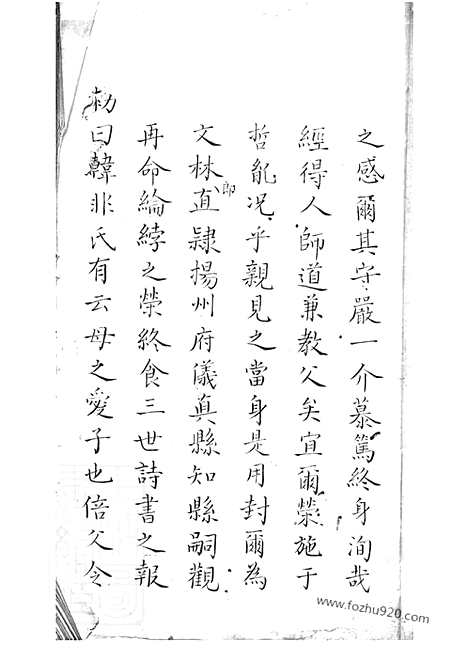 之感爾其守嚴一介慕篤終身洵哉
經得人師道兼教父矣宜爾榮施于
哲能况乎親見之當身是用封爾為
文林郎直隸揚州府儀真縣知縣嗣觀
再命綸綍之榮終食三世詩書之報
勅曰韓非氏有云母之愛子也倍父令
www.fozhu920.com